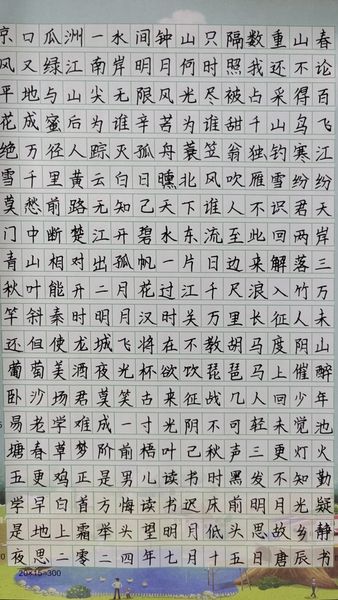 京口瓜洲一水间钟山只隔数重山春
风又绿江南岸明月何时照我还不论
平地与山尖无限风光尽被占采得百
花成蜜后为谁辛苦为谁甜千山鸟飞
绝万径人踪灭孤舟蓑笠翁独钓寒江
雪千里黄云白日曛北风吹雁雪纷纷
莫愁前路无知己天下谁人不识君天
门中断楚江开碧水东流至此回两岸
青山相对出孤帆一片日边来解落三
秋叶能开二月花过江千尺浪入竹万
竿斜秦时明月汉时关万里长征人未
还但使龙城飞将在不教胡马度阴山
葡萄美酒夜光杯欲饮琵琶马上催醉
卧沙场君莫笑古来征战几人回少年
易老学难成一寸光阴不可轻未觉池
塘春草梦阶前梧叶已秋声三更灯火
五更鸡正是男儿读书时黑发不知勤
学早白首方悔读书迟床前明月光疑
是地上霜举头望明月低头思故乡静
夜思二零二四年七月十五日唐辰书
20×15=300